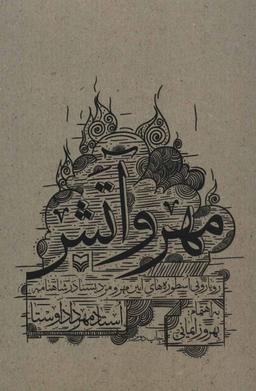 مهر و آتش
رویارویی اسطوره‌های آیین مهر و مزدیسنا در شاهنامه
به اهتمام:
بهروز ایمانی
استاد مهرداد اوستا